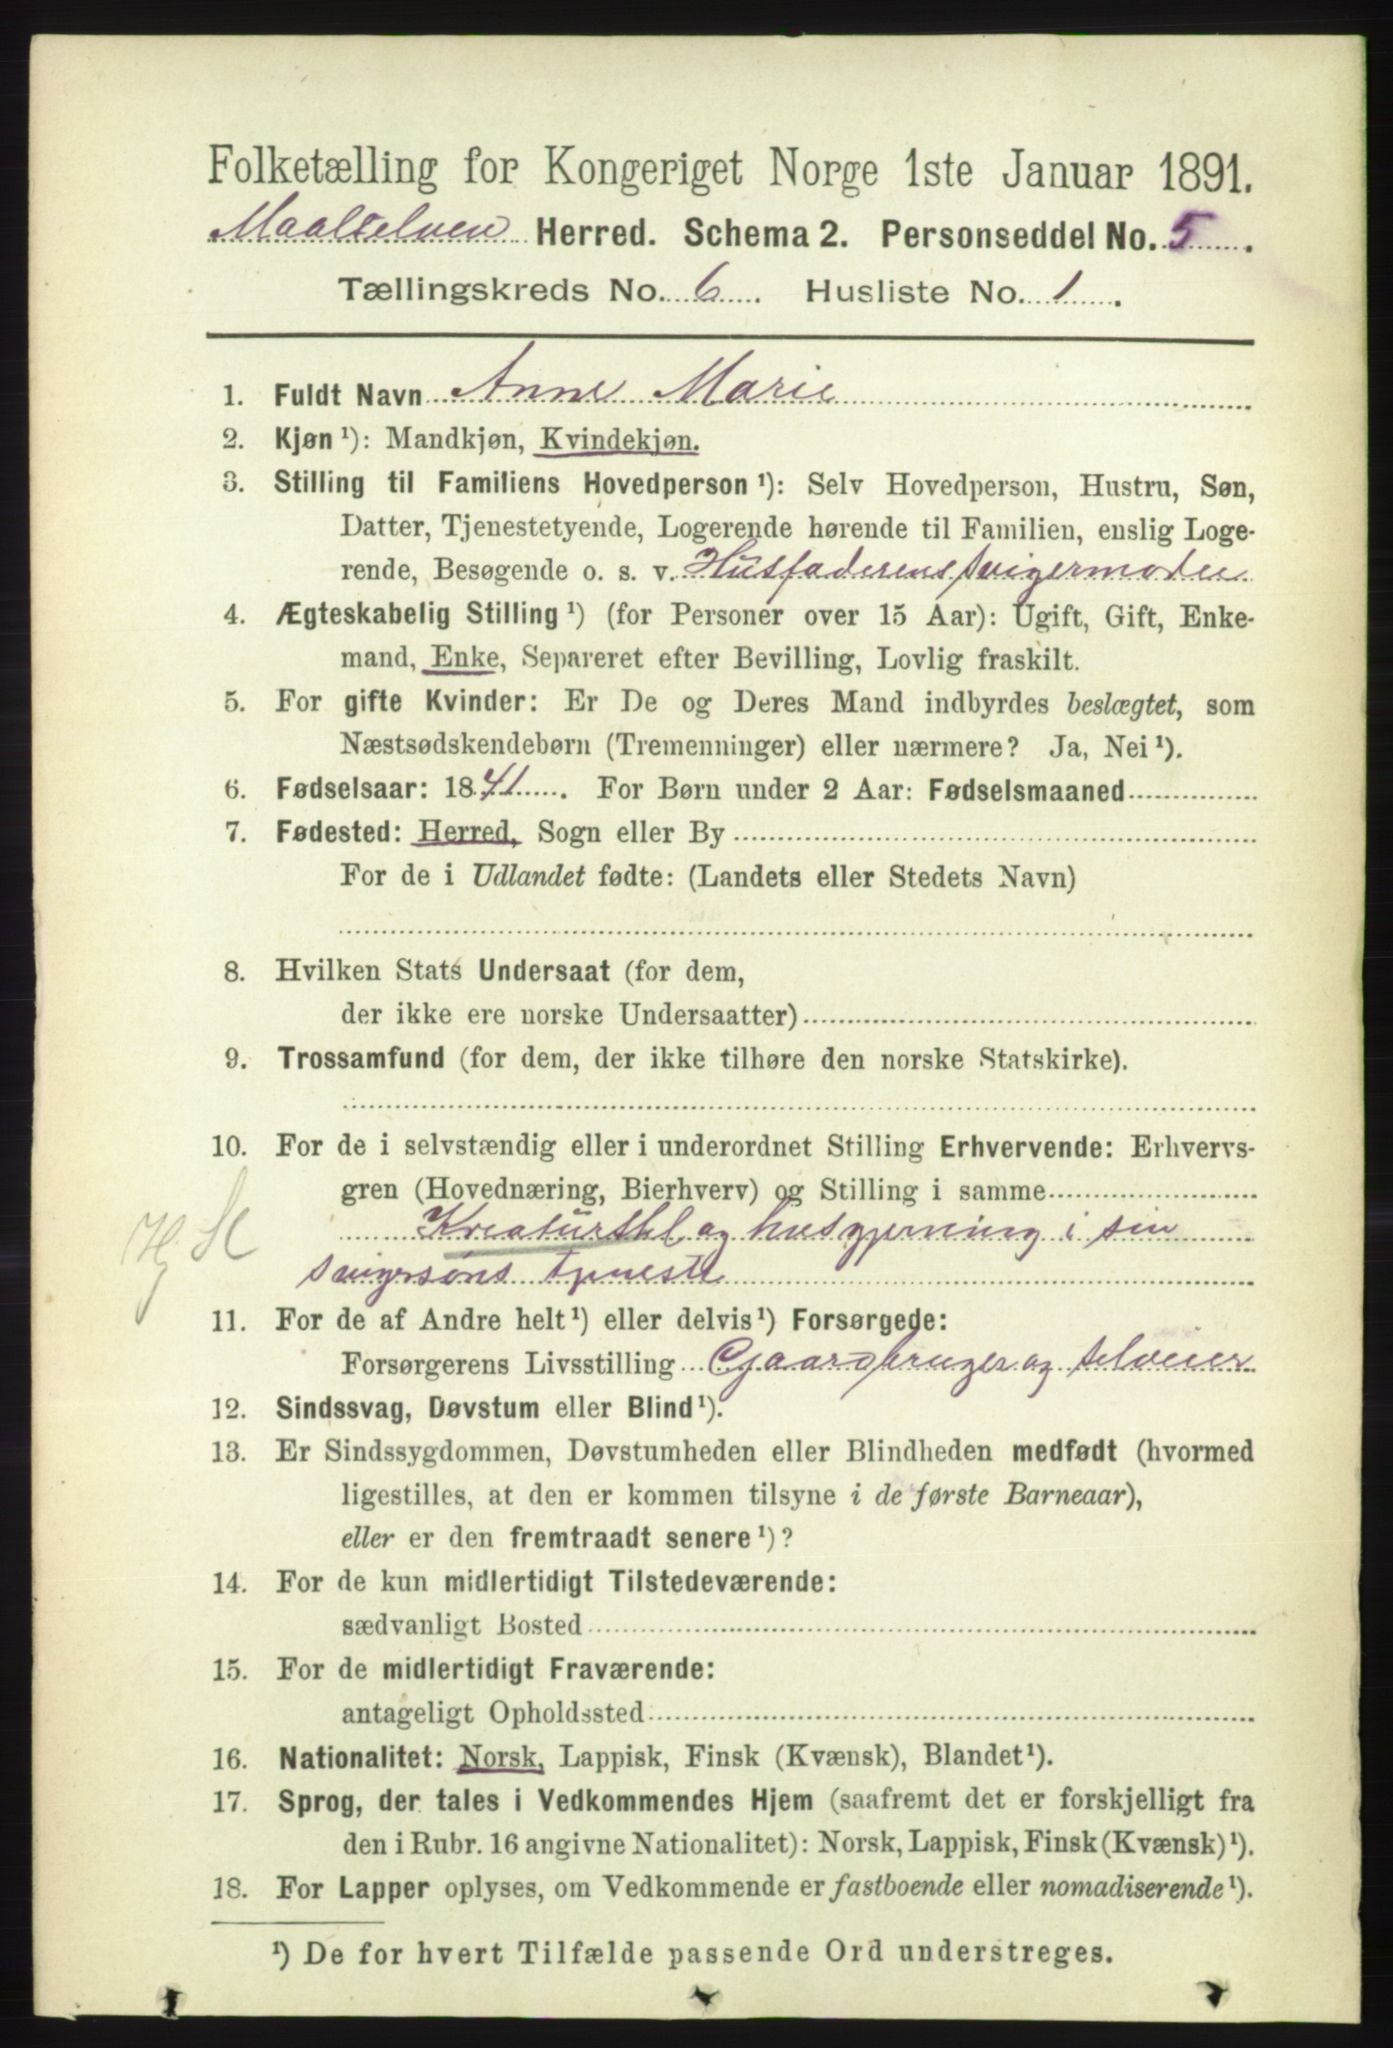 Folketælling for Kongeriget Norge 1ste Januar 1891.
Maalselven Herred. Schema 2. Personseddel No. 5.
Tællingskreds No. 6. Husliste No. 1.
1. Fuldt Navn Anne Marie
2. Kjøn ¹): Mandkjøn, Kvindekjøn.
3. Stilling til Familiens Hovedperson ¹): Selv Hovedperson, Hustru, Søn,
Datter, Tjenestetyende, Logerende hørende til Familien, enslig Loge-
rende, Besøgende o. s. v. Husfaderens svigermoder
4. Ægteskabelig Stilling ¹) (for Personer over 15 Aar): Ugift, Gift, Enke-
mand, Enke, Separeret efter Bevilling, Lovlig fraskilt.
5. For gifte Kvinder: Er De og Deres Mand indbyrdes beslægtet, som
Næstsødskendebørn (Tremenninger) eller nærmere? Ja, Nei ¹).
6. Fødselsaar: 1841. For Børn under 2 Aar: Fødselsmaaned
7. Fødested: Herred, Sogn eller By
For de i Udlandet fødte: (Landets eller Stedets Navn)
8. Hvilken Stats Undersaat (for dem,
der ikke ere norske Undersaatter)
9. Trossamfund (for dem, der ikke tilhøre den norske Statskirke).
10. For de i selvstændig eller i underordnet Stilling Erhvervende: Erhvervs-
gren (Hovednæring, Bierhverv) og Stilling i samme
Kreaturstel og husgjerning i sin
svigersøns tjeneste
11. For de af Andre helt ¹) eller delvis ¹) Forsørgede:
Forsørgerens Livsstilling Gaardbruger og selveier
12. Sindssvag, Døvstum eller Blind ¹).
13. Er Sindssygdommen, Døvstumheden eller Blindheden medfødt (hvormed
ligestilles, at den er kommen tilsyne i de første Barneaar),
eller er den fremtraadt senere ¹)?
14. For de kun midlertidigt Tilstedeværende:
sædvanligt Bosted
15. For de midlertidigt Fraværende:
antageligt Opholdssted
16. Nationalitet: Norsk, Lappisk, Finsk (Kvænsk), Blandet ¹).
17. Sprog, der tales i Vedkommendes Hjem (saafremt det er forskjelligt fra
den i Rubr. 16 angivne Nationalitet): Norsk, Lappisk, Finsk (Kvænsk) ¹).
18. For Lapper oplyses, om Vedkommende er fastboende eller nomadiserende ¹).
¹) De for hvert Tilfælde passende Ord understreges.